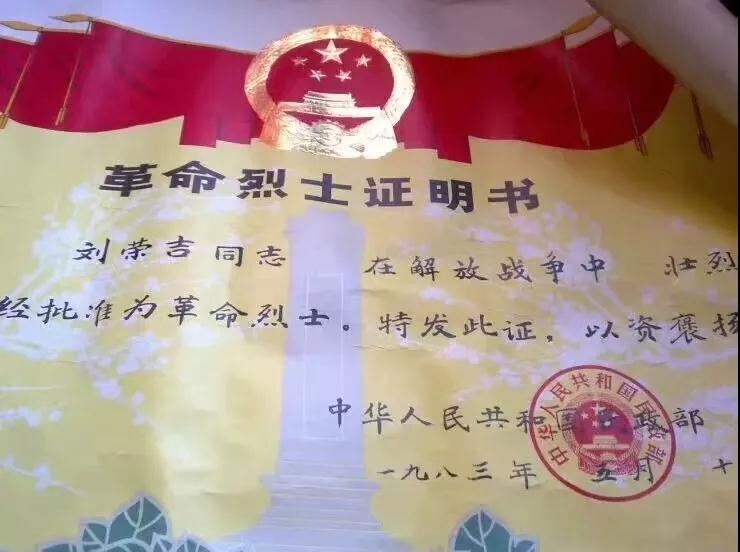 革命烈士证明书
刘荣吉同志 在解放战争中 壮烈
经批准为革命烈士。特发此证，以资褒扬
中华人民共和国民政部
一九八三年 五月 十
中华人民共和国民政部